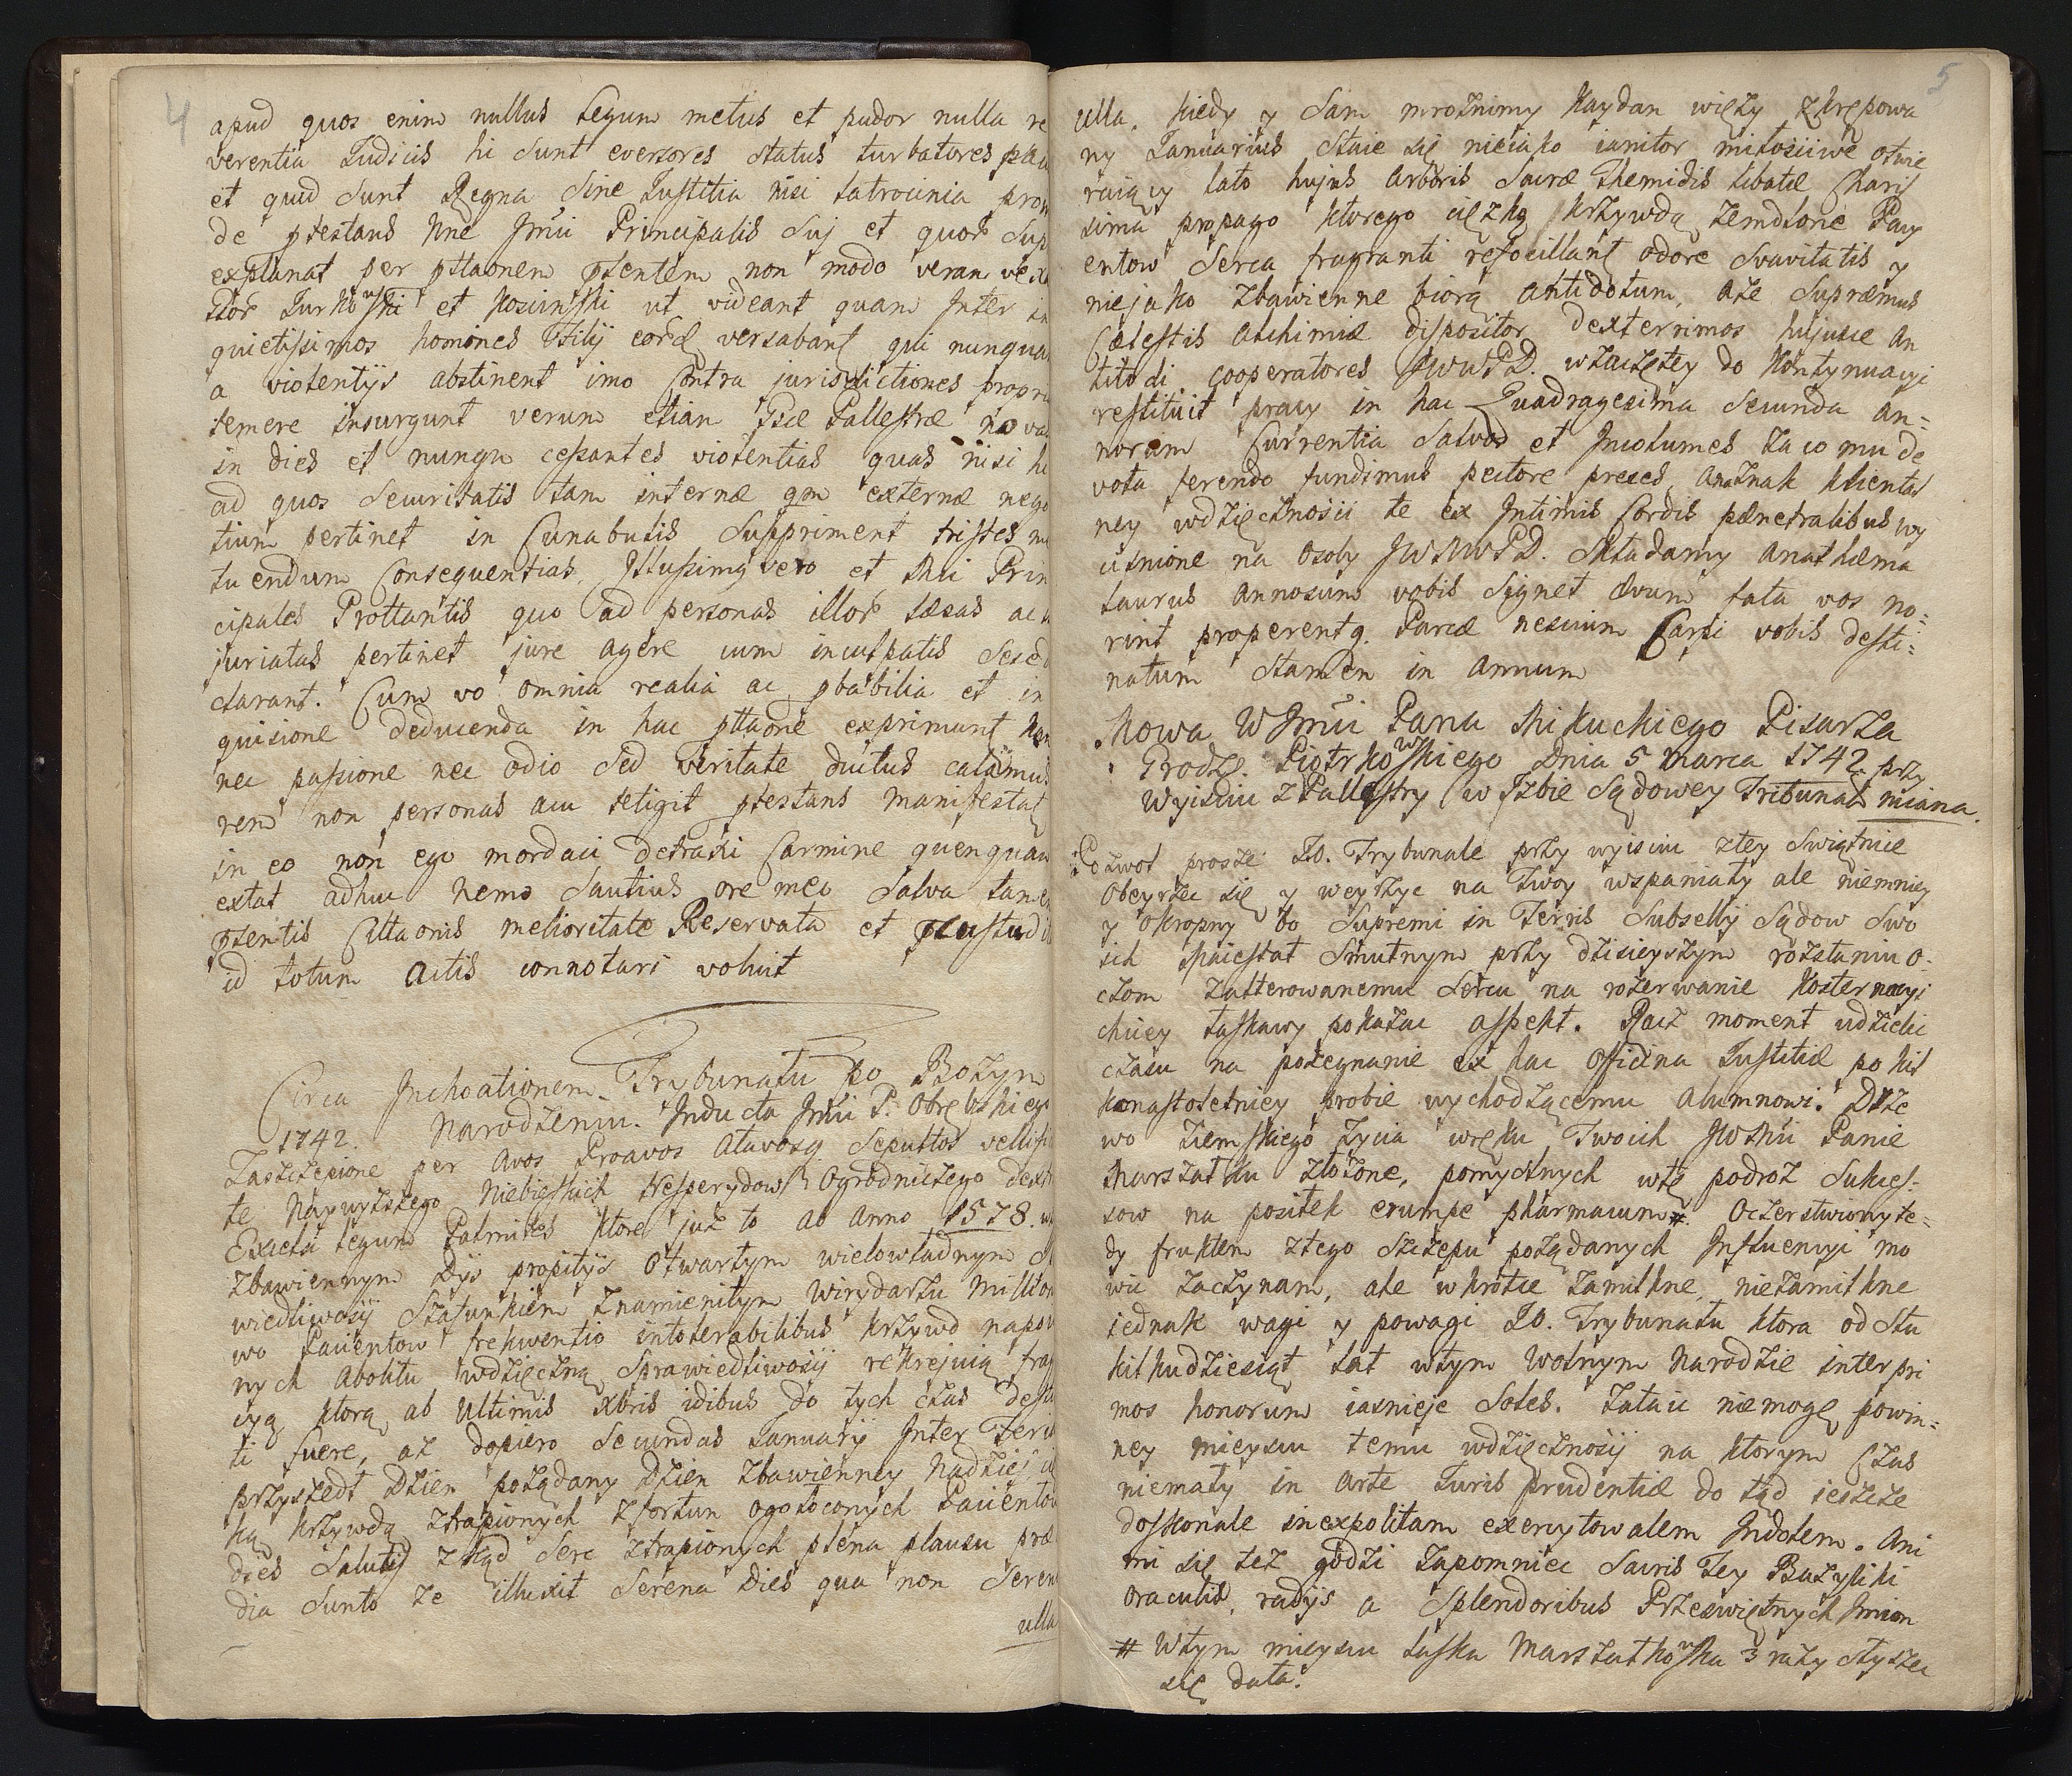 4
apud quos enim nullus Legum metus et pudor nulla re
verentia Judiciis hi sunt eversores status turbatores
et quid sunt Regna sine Justitia nisi latrocinia
de ptestans nne Jmii Principalis Suj et quor
explanat per pttaonem ptentem non modo veram
et ut videant quam Inter
quietissimos homines Filij versabant qui nunqua
a violentijs abstinent imo Contra jurisdictiones
temere insurgunt verum etiam Ipsæ Pallestræ
in dies et nunqu cessantes violentias quas nisi
ad quos Securitatis tam internæ qm externæ nego
tium pertinet in Cunabulis Suppriment tristes
tuendum Consequentias, vero et Prin
cipales Prottantis quo ad personas illor læsas ac
juriatas pertinet jure agere cum inculpatis
clarant. Cum vo omnia realia ac pbabilia et in
quisione deducenda in hac pttaone exprimunt
nec passione nec odio sed Veritate ductus calamus
rem non personas acu tetigit ptestans manifestat
in eo non ego mordaci detraxi Carmine quenquam
extat adhuc Nemo Sautius ore meo Salva tamen
ptentis Cittaonis melioritate Reservata et
id totum Actis connotari voluit
Circa Inchoationem Trybunału po Bożym
1742. Narodzeniu. Inducta Jmii P.
Zaszczepione per Avos Proavos Atavosq Sepultos
te Naywyższego Niebieskich Hesperydow Ogrodniczego
Exacta legum Palmites ktore już to ab Anno 1578.
zbawiennym Dijs propitijs Otwartym wielowładnym
wiedliwosij Szafunkiem znamienitym Wirydarzu
wo Pacientow frekwentio intolerabilibus krzywd
nych Abolitu wdzięczną Sprawiedliwosij
cyą ktorą ab Ultimis Xbris idibus do tych czas
ti fuere, aż dopiero Secundas Januarij Inter
przyszedł Dzien pożądany Dzien zbawienney Nadziei
ką krzywdą ztrapionych z fortun ogołoconych Pacientow
dies Salutis zkąd Serc ztrapionych plena plausu
dia Sunto że illuxit Serena Dies qua non
ulla
5
Ulla. Kiedy y Sam mrożnimy Kaydan więzy zkrępowa
ny Januarius Staie się nieiako ianitor miłosciwe otwie
raiący lato hujus Arboris Sacræ Themidis libatæ Charis
sima propago ktorego cięzką krzywdą zemdlone Pacy
entow Serca fragranti refocillant odore Suavitatis y
niejako zbawienne biorą Antidotum, aże Supremus
Cælestis Alchimiæ dispositor dexterrimos hujusce An
titodi Cooperatores JWWPD. wzaczętey do Kontynuacyi
restituit pracy in hac Quadragesima Secunda An=
norum Currentia Salvos et Incolumes za co mu de
vota ferendo fundimus pectore preces, Klientar
ney wdzięcznosii te ex Intimis Cordis pænetralibus wy
cisnione na Osoby JWWWPD. Składamy Anathæma
taurus Annosum vobis Signet Ævum fata vos no=
rint properentq. Parcæ nescium Carpi vobis desti=
natum Stamen in Annum
Mowa W Jmii Pana Mikuckiego Pisarza
Grodz. Piotrkowskiego Dnia 5 Marca 1742. przy
Wyisciu z Pallestry w Izbie Sądowey Tribunal miana.
Pozwol prosze Jo. Trybunale przy wyisciu ztey Swiątnice
Obeyrzec się y weyrzyc na Twoy wspaniały ale niemniey
y okropny bo Supremi in Terris Subsellij Sądow Swo
ich Maiestat Smutnym przy dzisieyszym rozstaniu o=
czom Zalterowanemu Sercu na rozerwanie Kosternacyi
chciey łaskawy pokazac Aspekt. Racz moment udzielic
czasu na pożegnanie ex hac Officina Justitiæ po kil
konastoletniey probie wychodzącemu Alumnowi. Drze
wo Ziemskiego życia wręku Twoich JWMci Panie
Marszałku złożone, pomyslnych wtę podroż Sukces=
sow na posiłek erumpe pharmacum #. Oczerstwiony te=
dy fruktem ztego Szczepu pożądanych Influencyi mo
wic zaczynam, ale wkrotce zamilkne, niezamilkne
iednak wagi y powagi Jo. Trybunału ktora od Stu
kilkudziesiąt lat wtym Wolnym Narodzie inter pri
mos honorum iasnieje Soles. Zataic niemogę powin=
ney mieyscu temu wdzięcznosij na ktorym Czas
niemały in Arte Juris prudentiæ do tąd ieszcze
doskonale inexpolitam exercytowałem Indolem. Ani
mi się też godzi zapomniec Sacris Tey Bazyliki
Oraculis, radijs a Splendoribus Przeswiętnych Imion
# Wtym mieyscu laska Marszałkowska 3 razy słyszec
się dała.